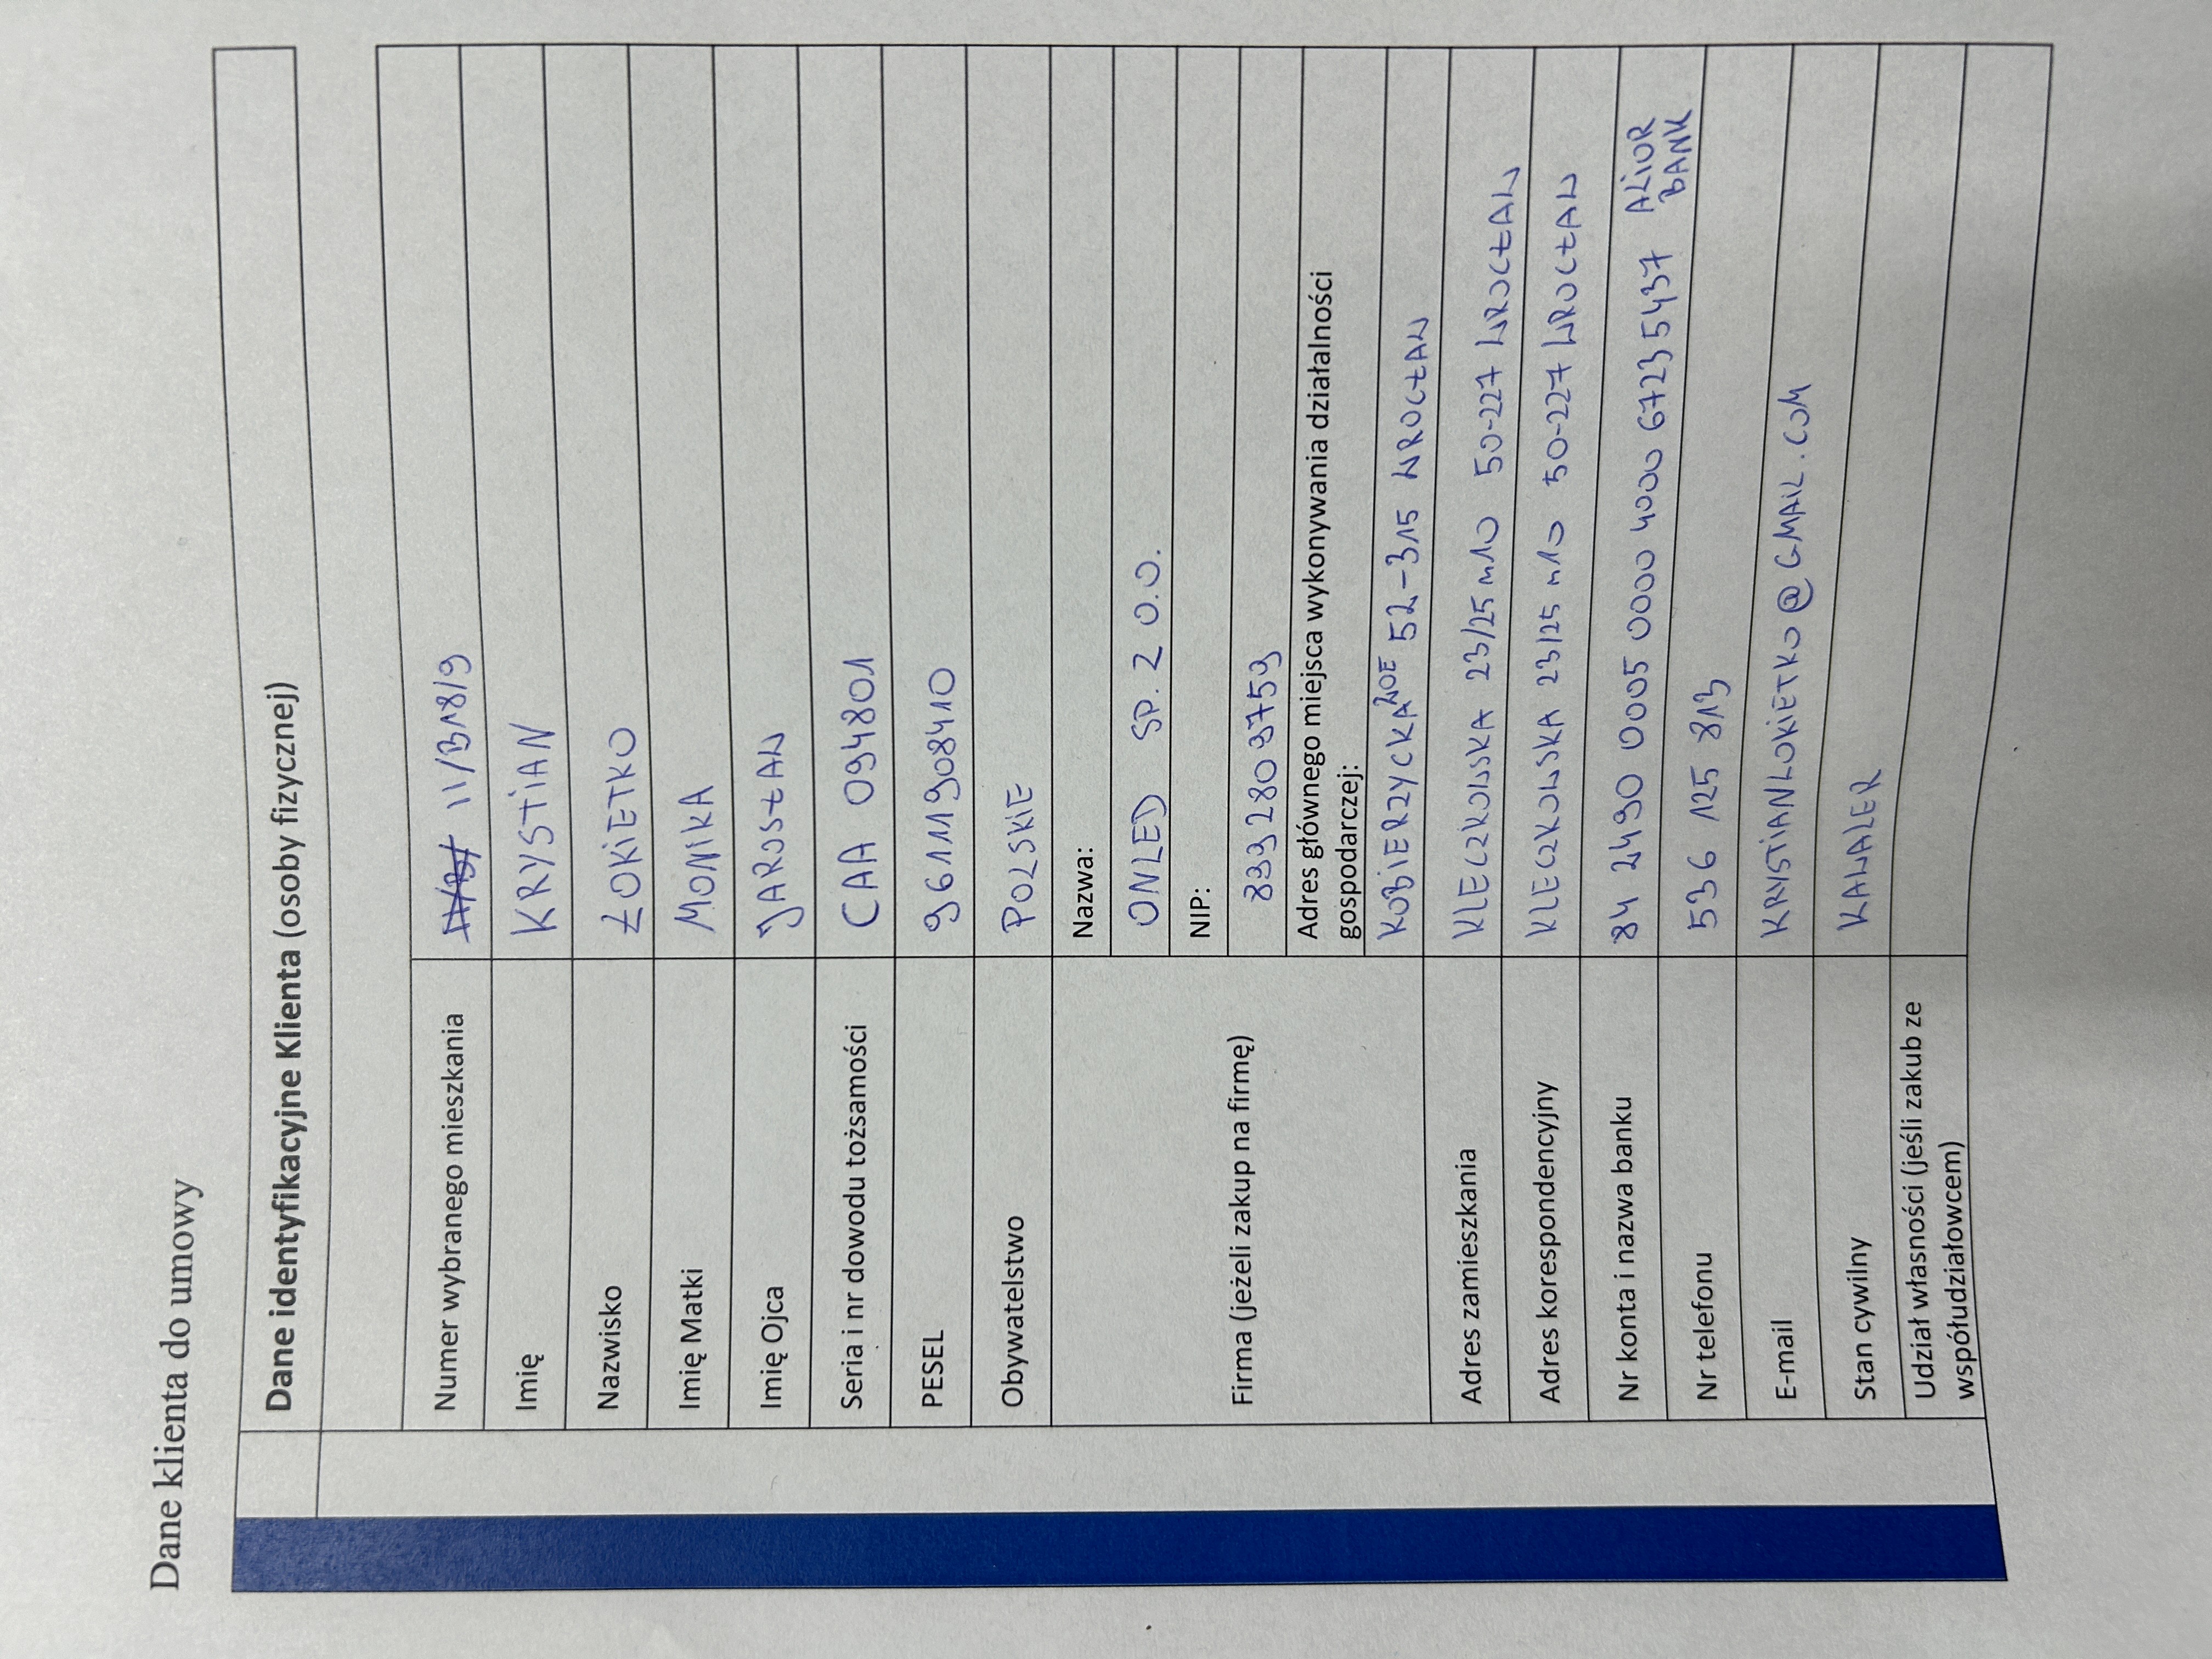 Dane klienta do umowy
Dane identyfikacyjne Klienta (osoby fizycznej)
Numer wybranego mieszkania II/B18/9
Imię KRYSTIAN
Nazwisko ŁOKIETKO
Imię Matki MONIKA
Imię Ojca JAROSŁAW
Seria i nr dowodu tożsamości CAA 094801
PESEL 96111908410
Obywatelstwo POLSKIE
Firma (jeżeli zakup na firmę)
Nazwa:
ONLED SP. Z O.O.
NIP:
8992809759
Adres głównego miejsca wykonywania działalności
gospodarczej:
KOBIERZYCKA 20E 52-315 WROCŁAW
Adres zamieszkania KLECZKOWSKA 23/25 m10 50-227 WROCŁAW
Adres korespondencyjny KLECZKOWSKA 23/25 m10 50-227 WROCŁAW
Nr konta i nazwa banku 84 2490 0005 0000 4000 6723 5437 ALIOR
BANK
Nr telefonu 536 125 813
E-mail KRYSTIANLOKIETKO@GMAIL.COM
Stan cywilny KAWALER
Udział własności (jeśli zakub ze
współudziałowcem)